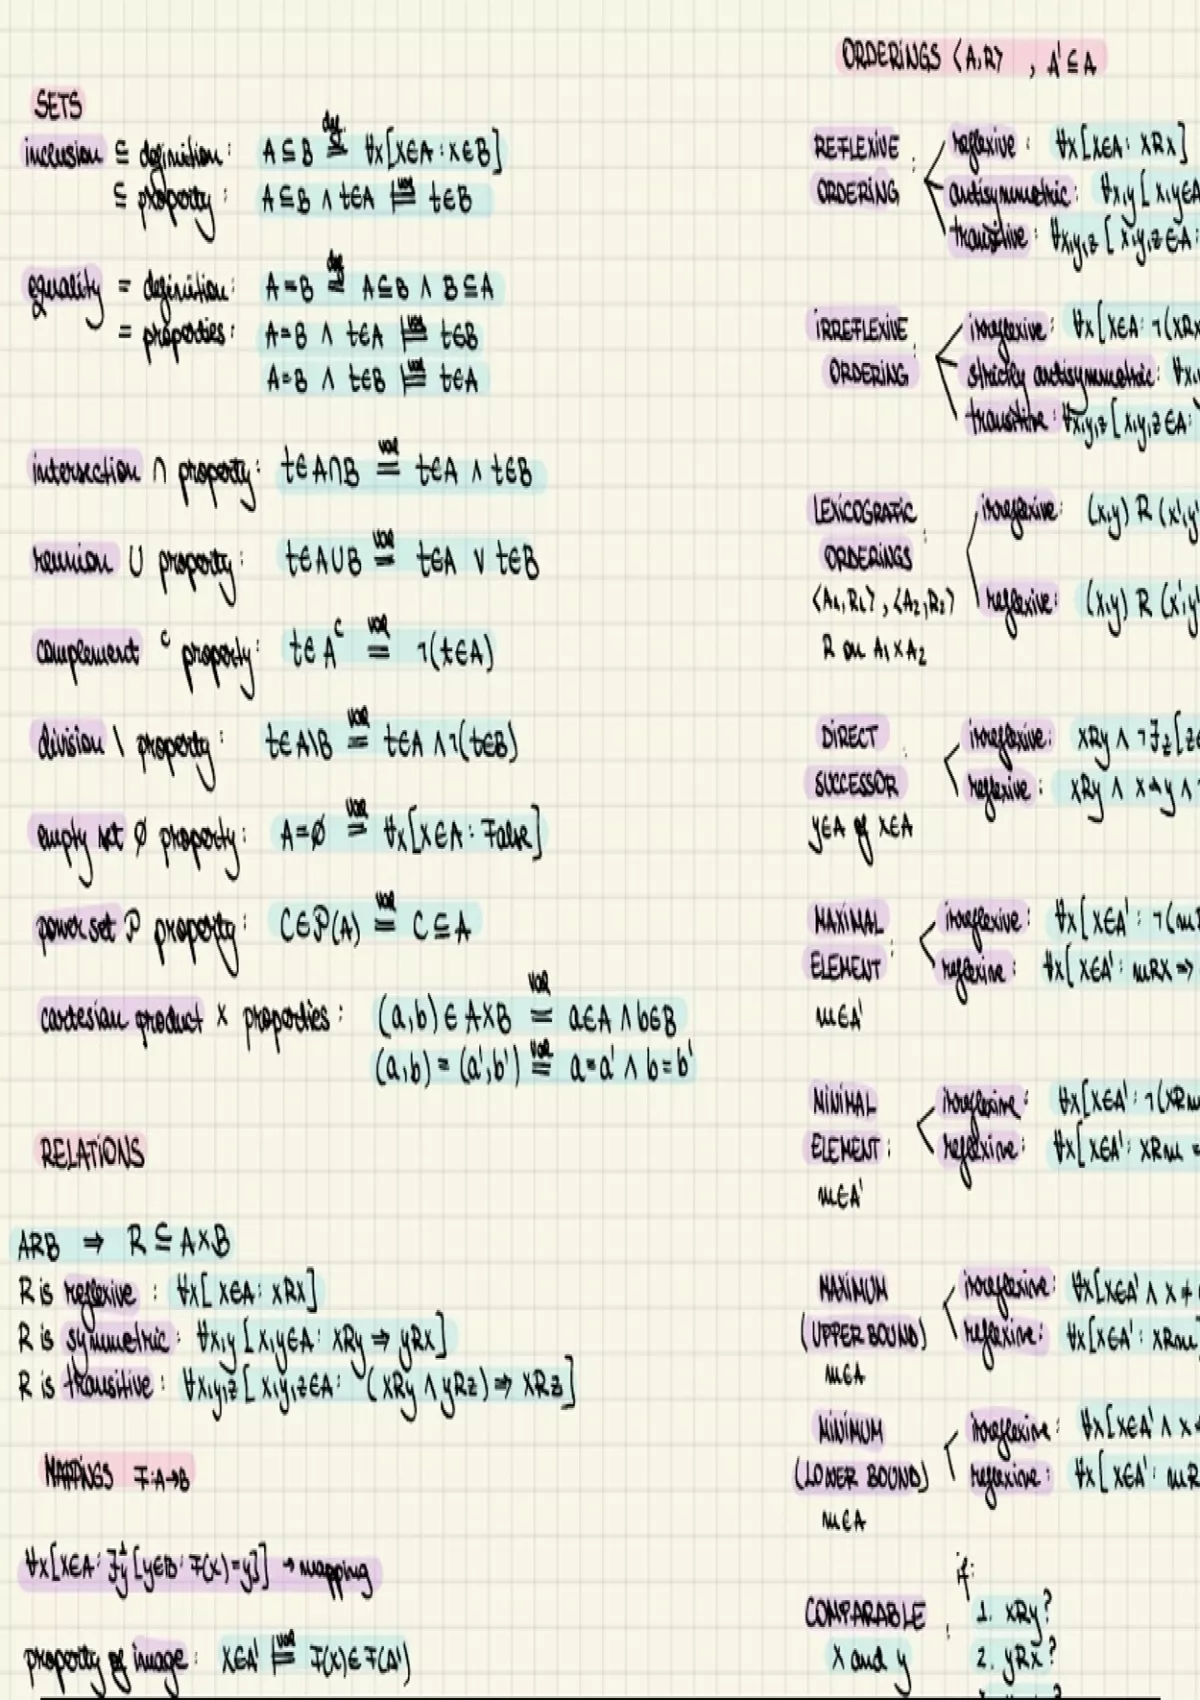 SETS
inclusion ⊆ definition: A⊆B def= ∀x[x∈A: x∈B]
⊆ property: A⊆B ∧ t∈A val⊨ t∈B
equality = definition: A=B def= A⊆B ∧ B⊆A
= properties: A=B ∧ t∈A val⊨ t∈B
A=B ∧ t∈B val⊨ t∈A
intersection ∩ property: t∈A∩B val= t∈A ∧ t∈B
reunion ∪ property: t∈A∪B val= t∈A ∨ t∈B
complement ᶜ property: t∈Aᶜ val= ¬(t∈A)
division \ property: t∈A\B val= t∈A ∧ ¬(t∈B)
empty set ∅ property: A=∅ val= ∀x[x∈A: False]
power set P property: C∈P(A) val= C⊆A
cartesian product × properties: (a,b)∈A×B val= a∈A ∧ b∈B
(a,b)=(a',b') val= a=a' ∧ b=b'
RELATIONS
ARB ⇒ R⊆A×B
R is reflexive: ∀x[x∈A: xRx]
R is symmetric: ∀x,y[x,y∈A: xRy ⇒ yRx]
R is transitive: ∀x,y,z[x,y,z∈A: (xRy ∧ yRz) ⇒ xRz]
MAPPINGS F:A→B
∀x[x∈A: ∃¹y[y∈B: F(x)=y]] → mapping
property of image: x∈A' val⊨ F(x)∈F(A')
ORDERINGS <A,R>, A'⊆A
REFLEXIVE ORDERING:
reflexive: ∀x[x∈A: xRx]
antisymmetric: ∀x,y[x,y∈A
transitive: ∀x,y,z[x,y,z∈A:
IRREFLEXIVE ORDERING:
irreflexive: ∀x[x∈A: ¬(xRx
strictly antisymmetric: ∀x,y
transitive: ∀x,y,z[x,y,z∈A:
LEXICOGRAFIC ORDERINGS:
<A₁,R₁>, <A₂,R₂>
R on A₁×A₂
irreflexive: (x,y) R (x',y'
reflexive: (x,y) R (x',y'
DIRECT SUCCESSOR:
y∈A of x∈A
irreflexive: xRy ∧ ¬∃z[z∈
reflexive: xRy ∧ x≠y ∧ ¬
MAXIMAL ELEMENT:
m∈A'
irreflexive: ∀x[x∈A': ¬(mR
reflexive: ∀x[x∈A': mRx ⇒
MINIMAL ELEMENT:
m∈A'
irreflexive: ∀x[x∈A': ¬(xRm
reflexive: ∀x[x∈A': xRm =
MAXIMUM
(UPPER BOUND)
m∈A
irreflexive: ∀x[x∈A' ∧ x≠
reflexive: ∀x[x∈A': xRm]
MINIMUM
(LOWER BOUND)
m∈A
irreflexive: ∀x[x∈A' ∧ x
reflexive: ∀x[x∈A': mR
COMPARABLE:
x and y
if:
1. xRy?
2. yRx?